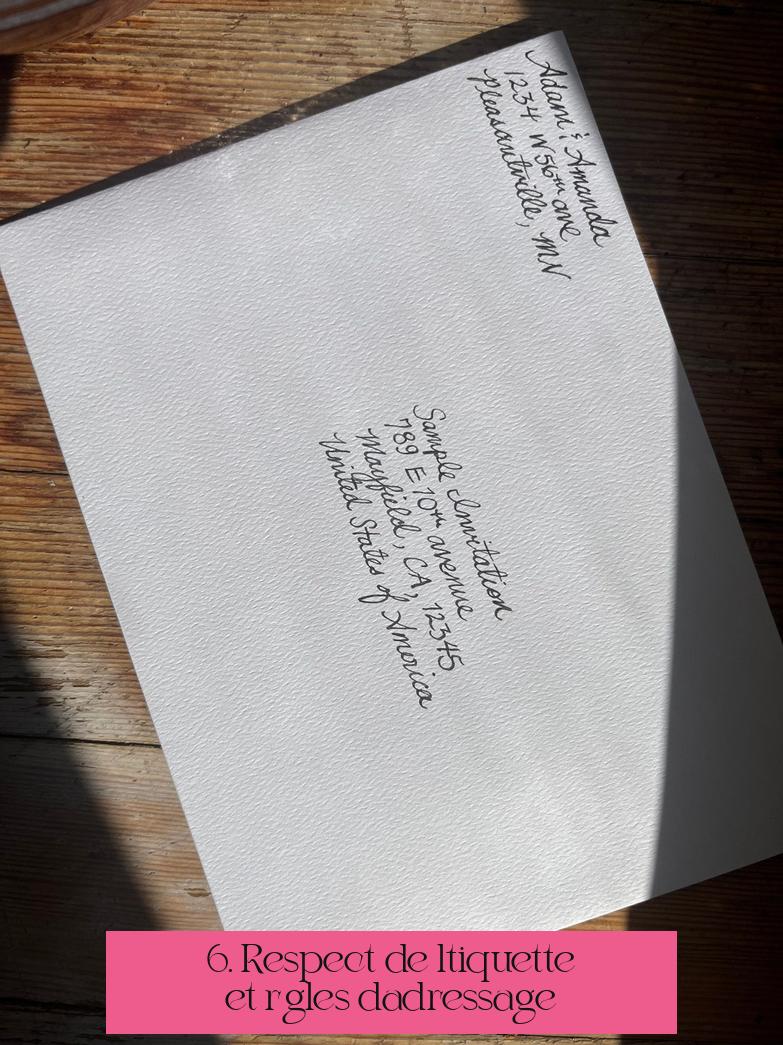 Adam & Amanda
1234 W 56th ave
Pleasantville, MN
Sample Invitation
789 E 10th avenue
Mayfield, CA, 12345
United States of America
6. Respect de ltiquette
et rgles dadressage